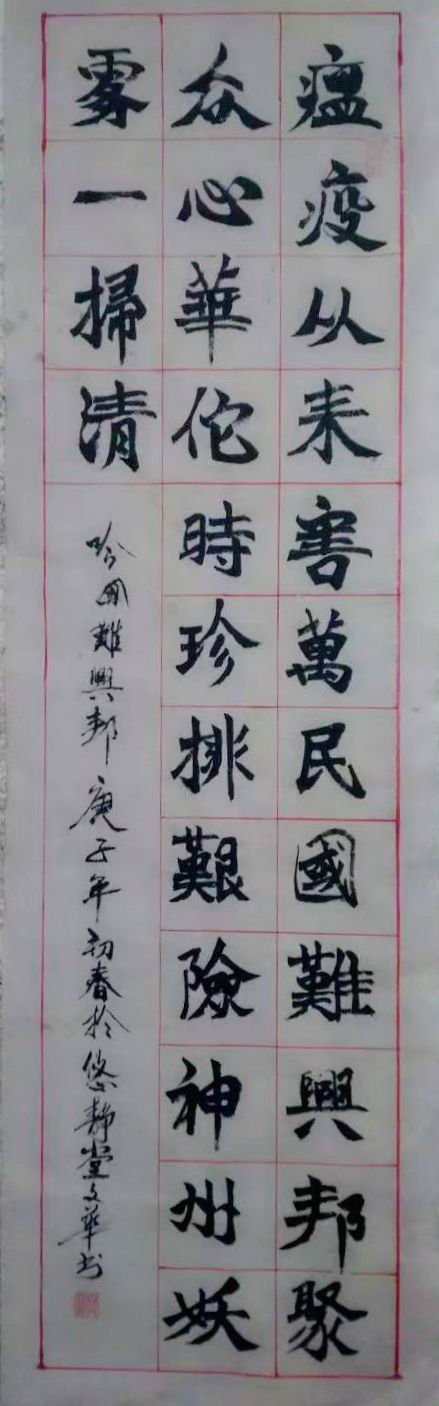 瘟疫从来害萬民國難興邦聚
众心華佗時珍排艱險神州妖
雾一掃清
吟國難興邦庚子年初春於悠静堂文華书